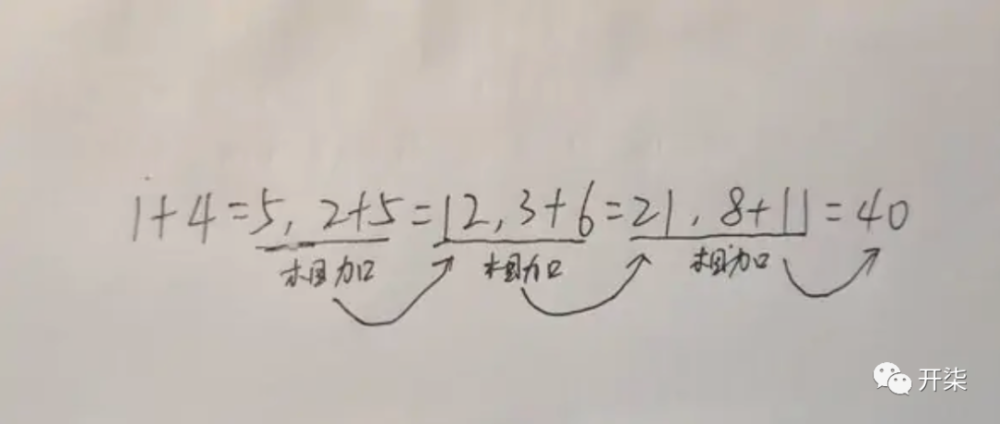 1+4=5, 2+5=12, 3+6=21, 8+11=40
相加 相加 相加
开柒